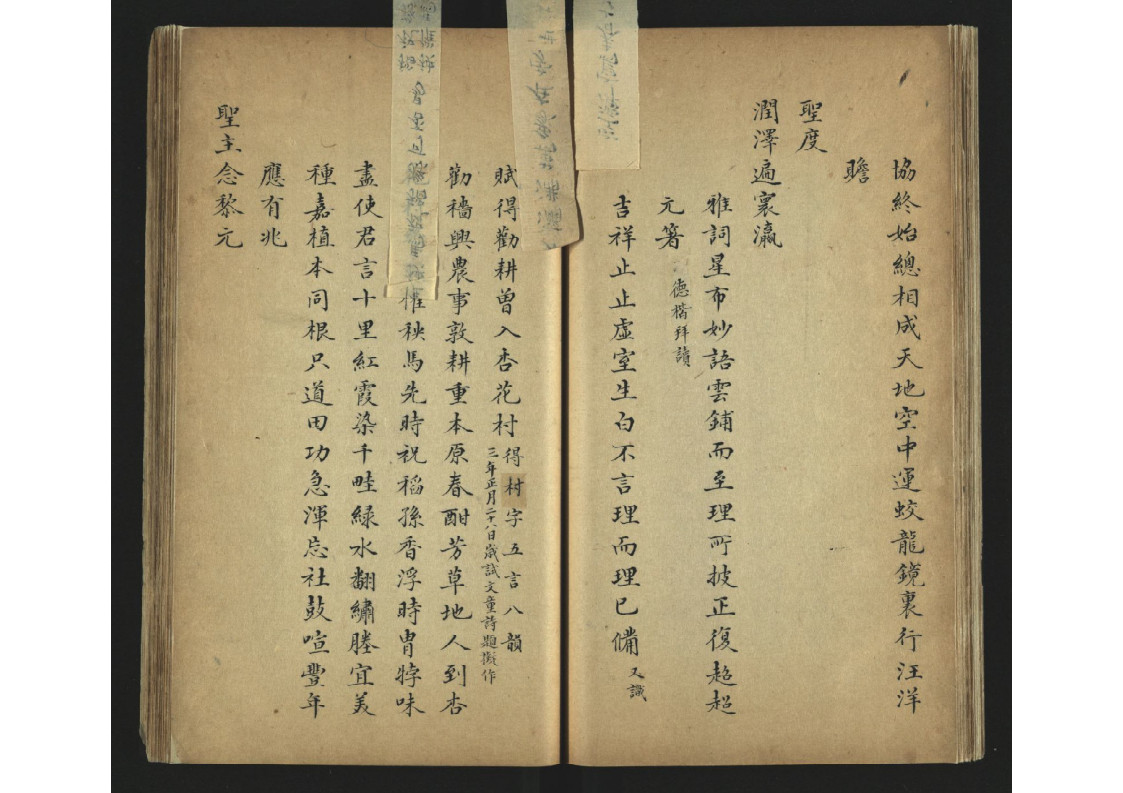 協終始總相成天地空中運蛟龍鏡裏行汪洋
瞻
聖度
潤澤遍寰瀛
雅詞星布妙語雲鋪而至理所披正復超超
元箸 德楷拜讀
吉祥止止虛室生白不言理而理已備 又識
賦得勸耕曾入杏花村 得村字五言八韻
三年正月二十八日歲試文童詩題擬作
勸穡興農事敦耕重本原春酣芳草地人到杏
權秧馬先時祝稻孫香浮時胄餑味
盡使君言十里紅霞染千畦綠水翻繡塍宜美
種嘉植本同根只道田功急渾忘社鼓喧豐年
應有兆
聖主念黎元